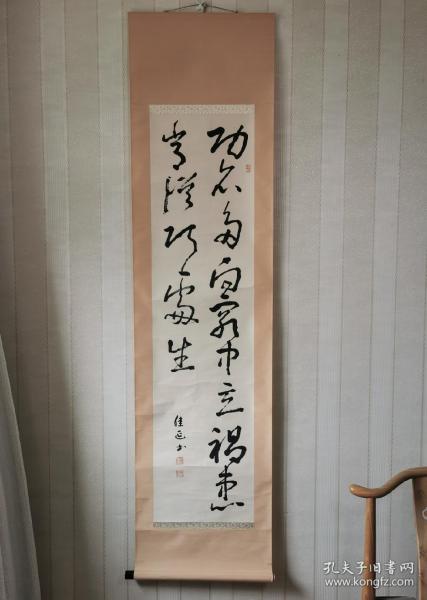 功名多向窮中立禍患
常從巧處生
佳邑书
孔夫子旧书网
https://www.kongfz.com